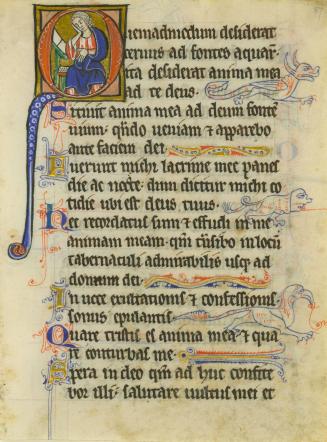 Quemadmodum desiderat
cervus ad fontes aquar
ita desiderat anima mea
ad te deus
Sitivit anima mea ad deum fonte
vivum · qn̄do veniam ⁊ apparebo
ante faciem dei
Fuerunt michi lacrime mee panes
die ac nocte · dum dicitur michi co
tidie ubi est deus tuus
Hec recordatus sum ⁊ effudi in me
animam meam · qm̄ tn̄sibo in locū
tabernaculi admirabilis usqȝ ad
domum dei
In voce exultationis ⁊ confessionis
sonus epulantis
Quare tristis es anima mea · ⁊ qua
re conturbas me
Spera in deo qm̄ ad huc confite
bor illi · salutare vultus mei et